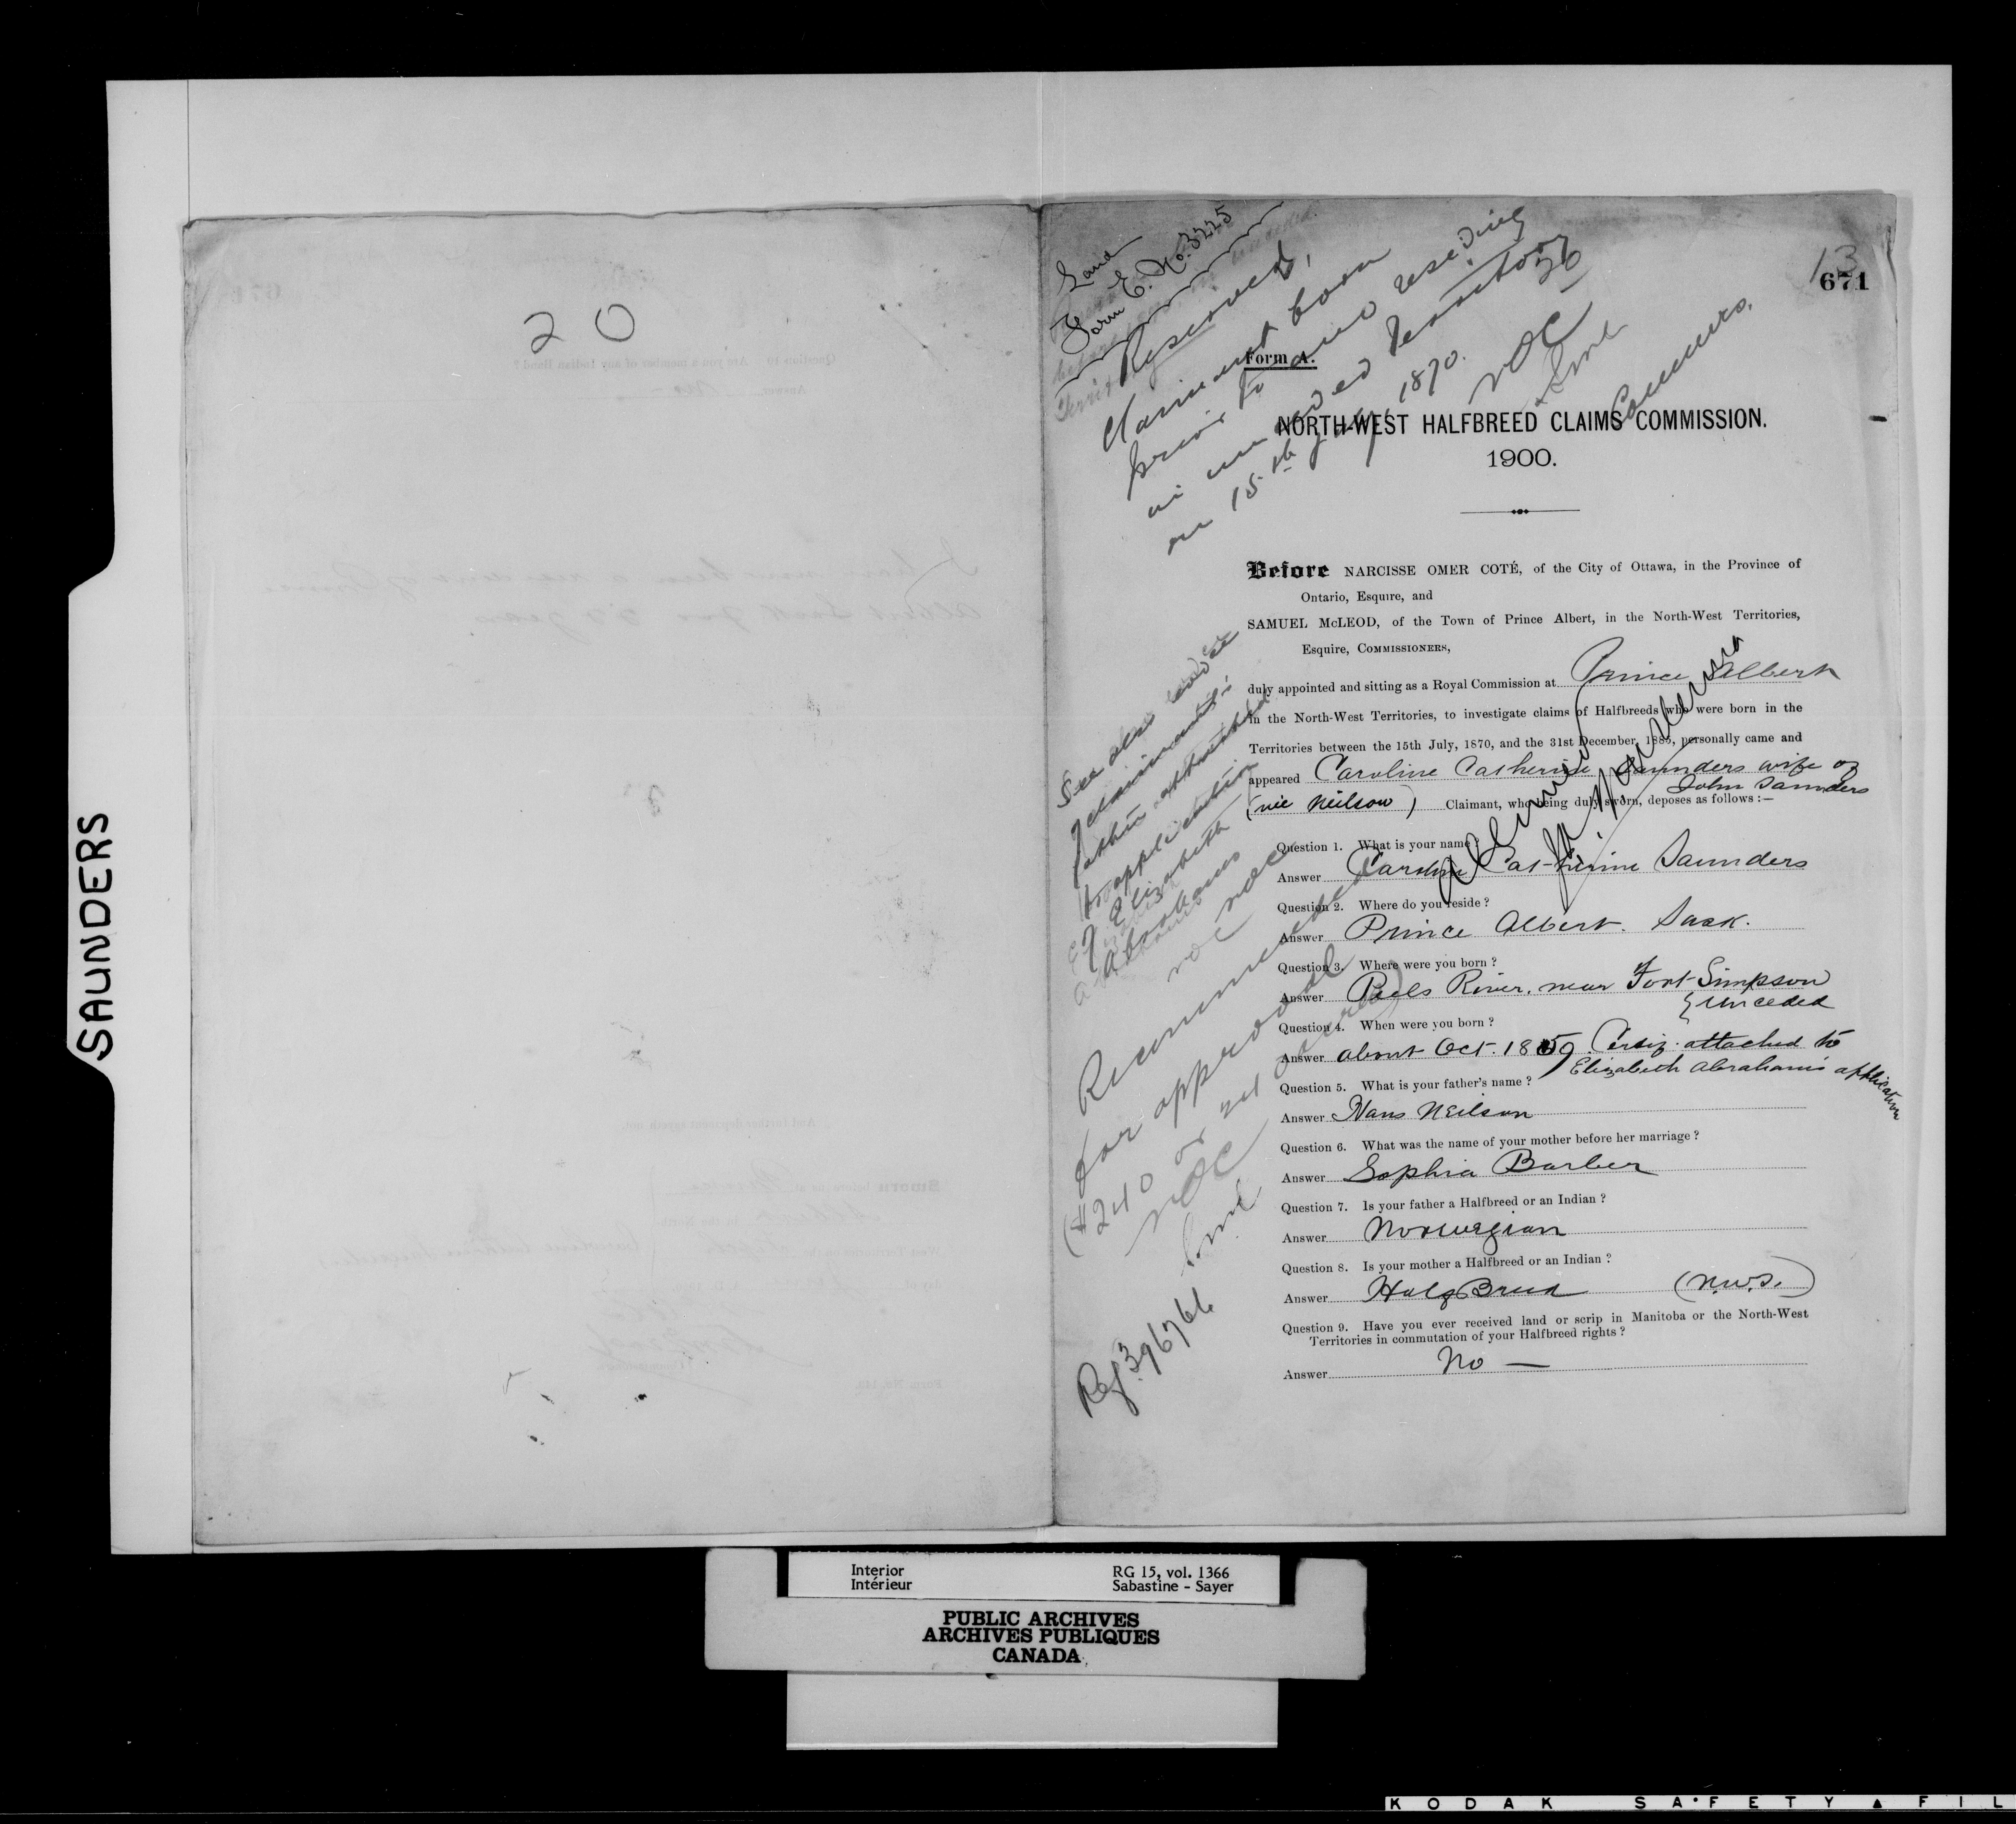 SAUNDERS
20
Land
Form E. No. 3225
Reserved,
Claimant born
prior to and residing
in unceded Territory 20
on 15th July, 1870.
NOC
Commrs.
13
671
Form A.
NORTH-WEST HALFBREED CLAIMS COMMISSION.
1900.
Before NARCISSE OMER COTÉ, of the City of Ottawa, in the Province of
Ontario, Esquire, and
SAMUEL McLEOD, of the Town of Prince Albert, in the North-West Territories,
Esquire, COMMISSIONERS,
duly appointed and sitting as a Royal Commission at Prince Albert
in the North-West Territories, to investigate claims of Halfbreeds who were born in the
Territories between the 15th July, 1870, and the 31st December, 1885, personally came and
appeared Caroline Catherine Saunders wife of
John Saunders
(née Neilson) Claimant, who being duly sworn, deposes as follows :—
Question 1. What is your name?
Answer Caroline Catherine Saunders
Question 2. Where do you reside ?
Answer Prince Albert. Sask.
Question 3. Where were you born ?
Answer Peels River, near Fort Simpson
unceded
Question 4. When were you born ?
Answer about Oct. 1859. Certif. attached to
Elizabeth Abraham's application
Question 5. What is your father's name ?
Answer Hans Neilson
Question 6. What was the name of your mother before her marriage ?
Answer Sophia Barber
Question 7. Is your father a Halfbreed or an Indian ?
Answer Norwegian
Question 8. Is your mother a Halfbreed or an Indian ?
Answer HalfBreed (N.W.T.)
Question 9. Have you ever received land or scrip in Manitoba or the North-West
Territories in commutation of your Halfbreed rights ?
Answer No —
See also evidence
of claimant's
father attached
to application
of Elizabeth
Abrahams
NOC
Recommended
for approval
($240 or 240 acres)
NOC
Ref. 396766
Interior
Intérieur
RG 15, vol. 1366
Sabastine - Sayer
PUBLIC ARCHIVES
ARCHIVES PUBLIQUES
CANADA
KODAK SAFETY FIL